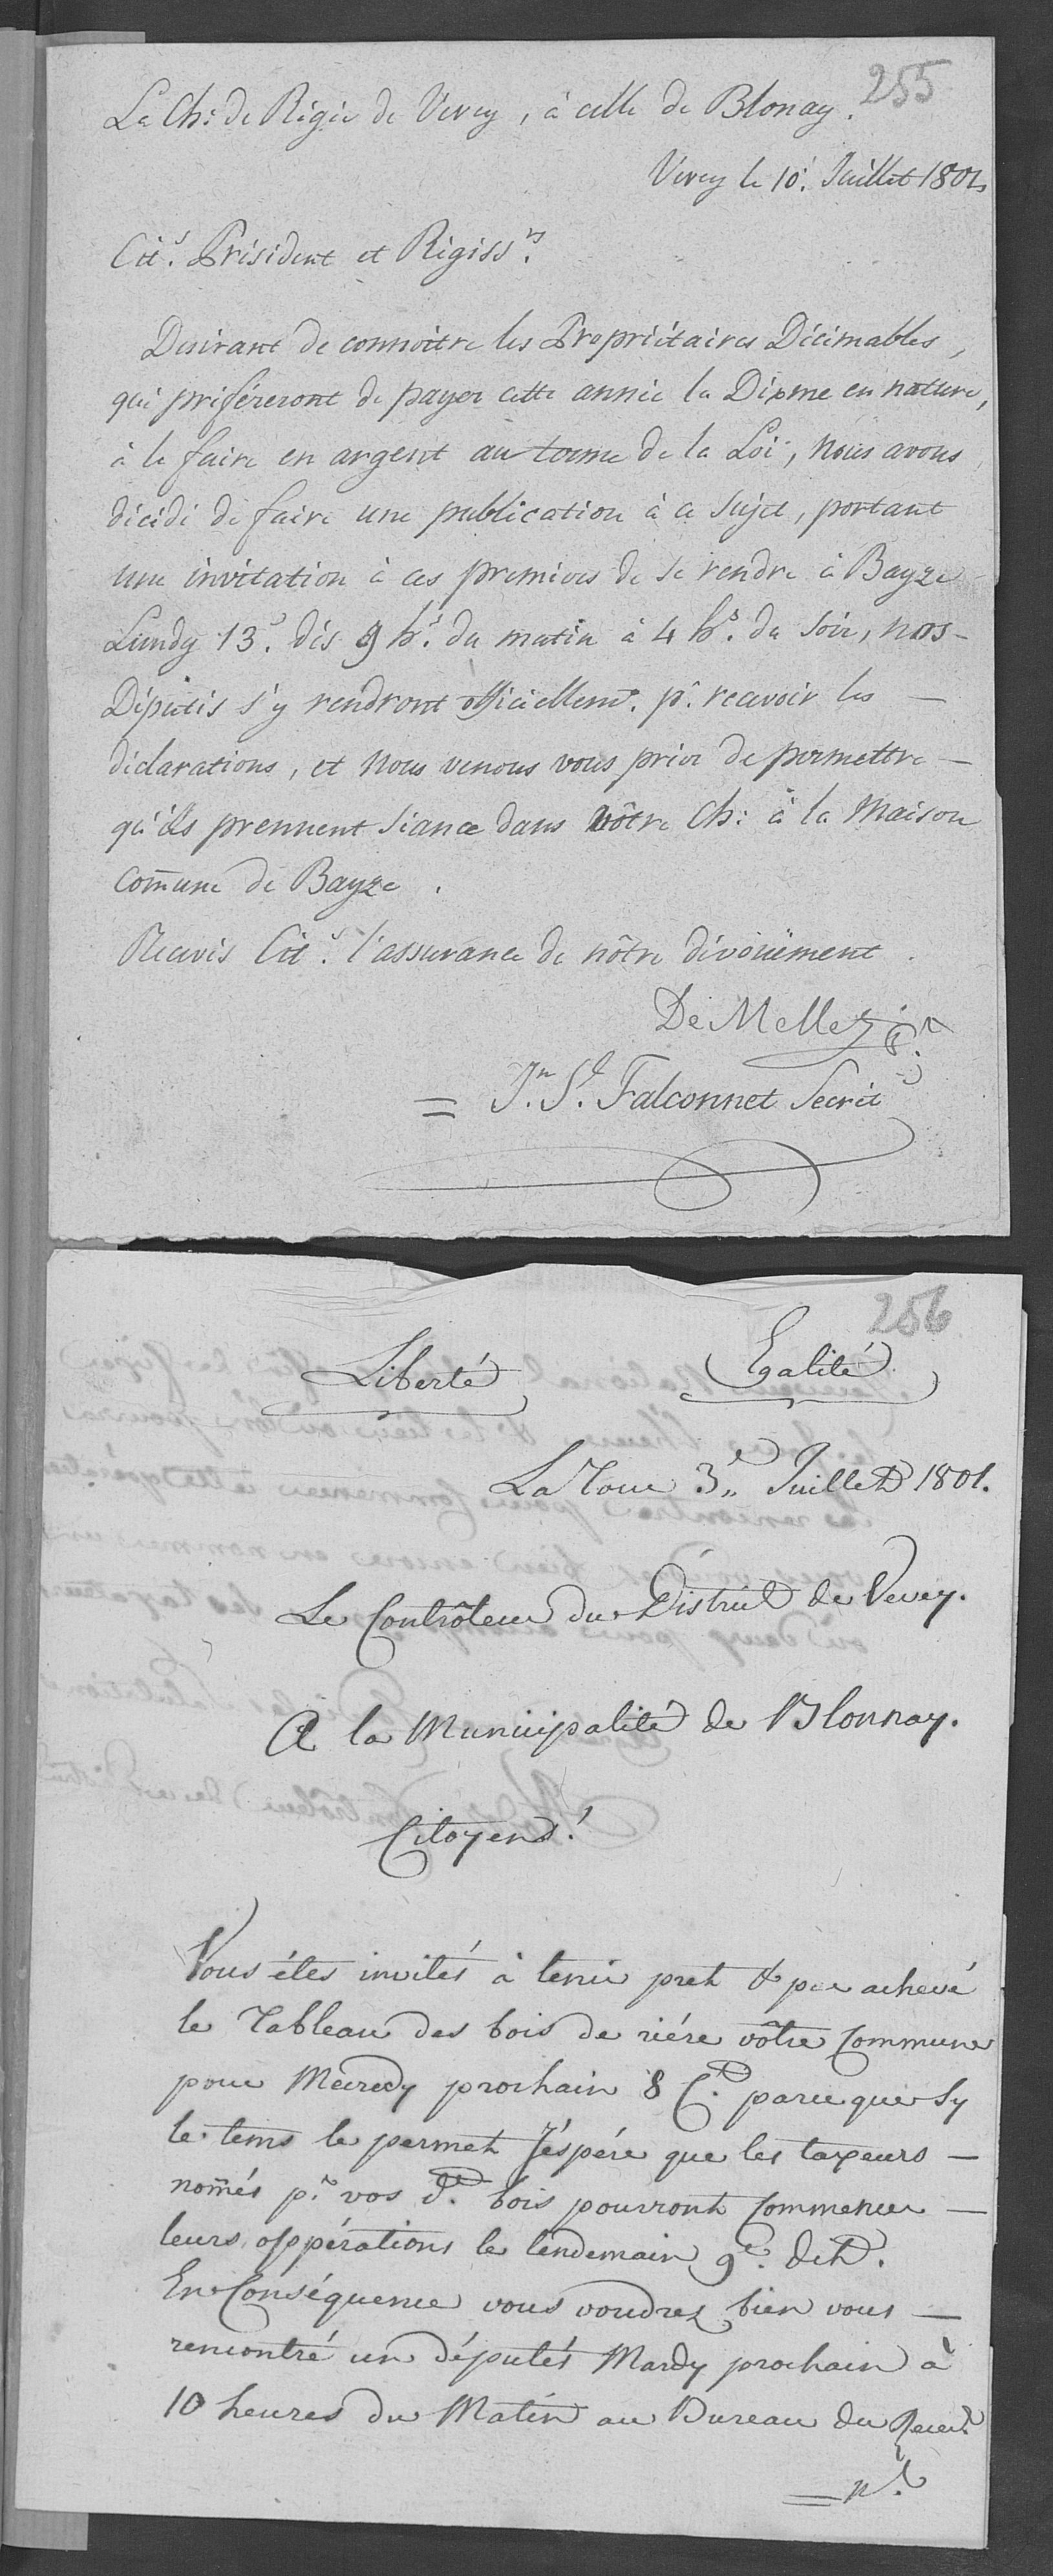 255
La Ch: de Régie de Vevey, à celle de Blonay.
Vevey le 10.e Juillet 1801
Cit.s Président et Régiss.rs
Desirant de connoitre les Propriétaires Décimables,
qui préféreront de payer cette année la Dixme en nature,
à le faire en argent au terme de la Loi, nous avons
décidé de faire une publication à ce sujet, portant
une invitation à ces premiers de se rendre à Bayze
Lundy 13.e dès 9 h.s du matin à 4 h.s du soir, nos-
Députés s'y rendront officiellem.t p.r recevoir les —
déclarations, et nous venons vous prier de permettre —
qu'ils prennent séance dans vôtre Ch: à la Maison
com̄une de Bayze.
Recevés Cit.s l'assurance de nôtre dévoüement.
De Mellet
= J.n S.l Falconnet Secrét
256
Liberté Egalité
La Tour 3.e Juillet 1801.
Le Contrôleur du District de Vevey.
A la Municipalité de Blonnay.
Citoyens!
Vous étes invités à tenir pret & par achevé
le Tableau des bois de riére vôtre Commune
pour Mécredy prochain 8 C.t parceque sy
le tems le permet J'éspére que les taxeurs —
nom̄és p.r vos d.ts bois pourront Commencer —
leurs oppérations le lendemain 9.e dit.
En Conséquence vous voudrez bien vous —
rencontré un députés Mardy prochain à
10 heures du Matin au Bureau du Recev.r
= n.l